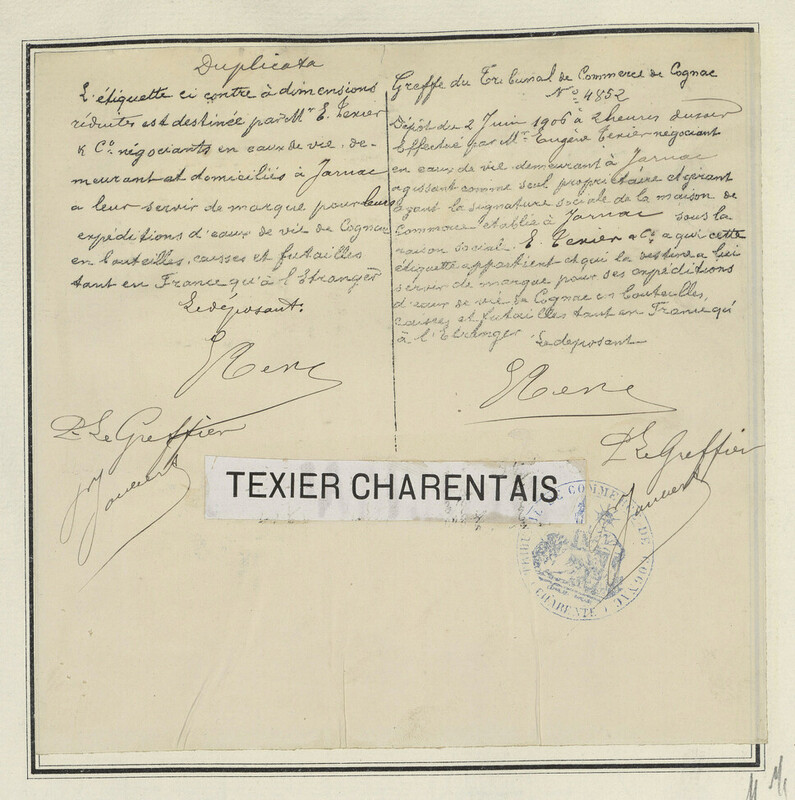 Duplicata
L'étiquette ci contre à dimensions
réduites est destinée par Mr E. Texier
& Co négociants en eaux de vie, de-
meurant et domiciliés à Jarnac
a leur servir de marque pour leurs
expéditions d'eaux de vie de Cognac
en bouteilles, caisses et futailles
tant en France qu'à l'Etranger
Le déposant.
P. Le Greffier
Greffe du Tribunal de Commerce de Cognac
No 4852
Dépôt du 2 Juin 1906 à 2 heures du soir
Effectué par Mr Eugène Texier négociant
en eaux de vie demeurant à Jarnac
agissant comme seul propriétaire et gérant
ayant la signature sociale de la maison de
Commerce établie à Jarnac sous la
raison sociale E. Texier & Co a qui cette
étiquette appartient et qui la destine a lui
servir de marque pour ses expéditions
d'eaux de vie de Cognac en bouteilles,
caisses et futailles tant en France qu'
à l'Etranger Le déposant
P. Le Greffier
TEXIER CHARENTAIS
TRIBUNAL DE COMMERCE DE COGNAC
CHARENTE